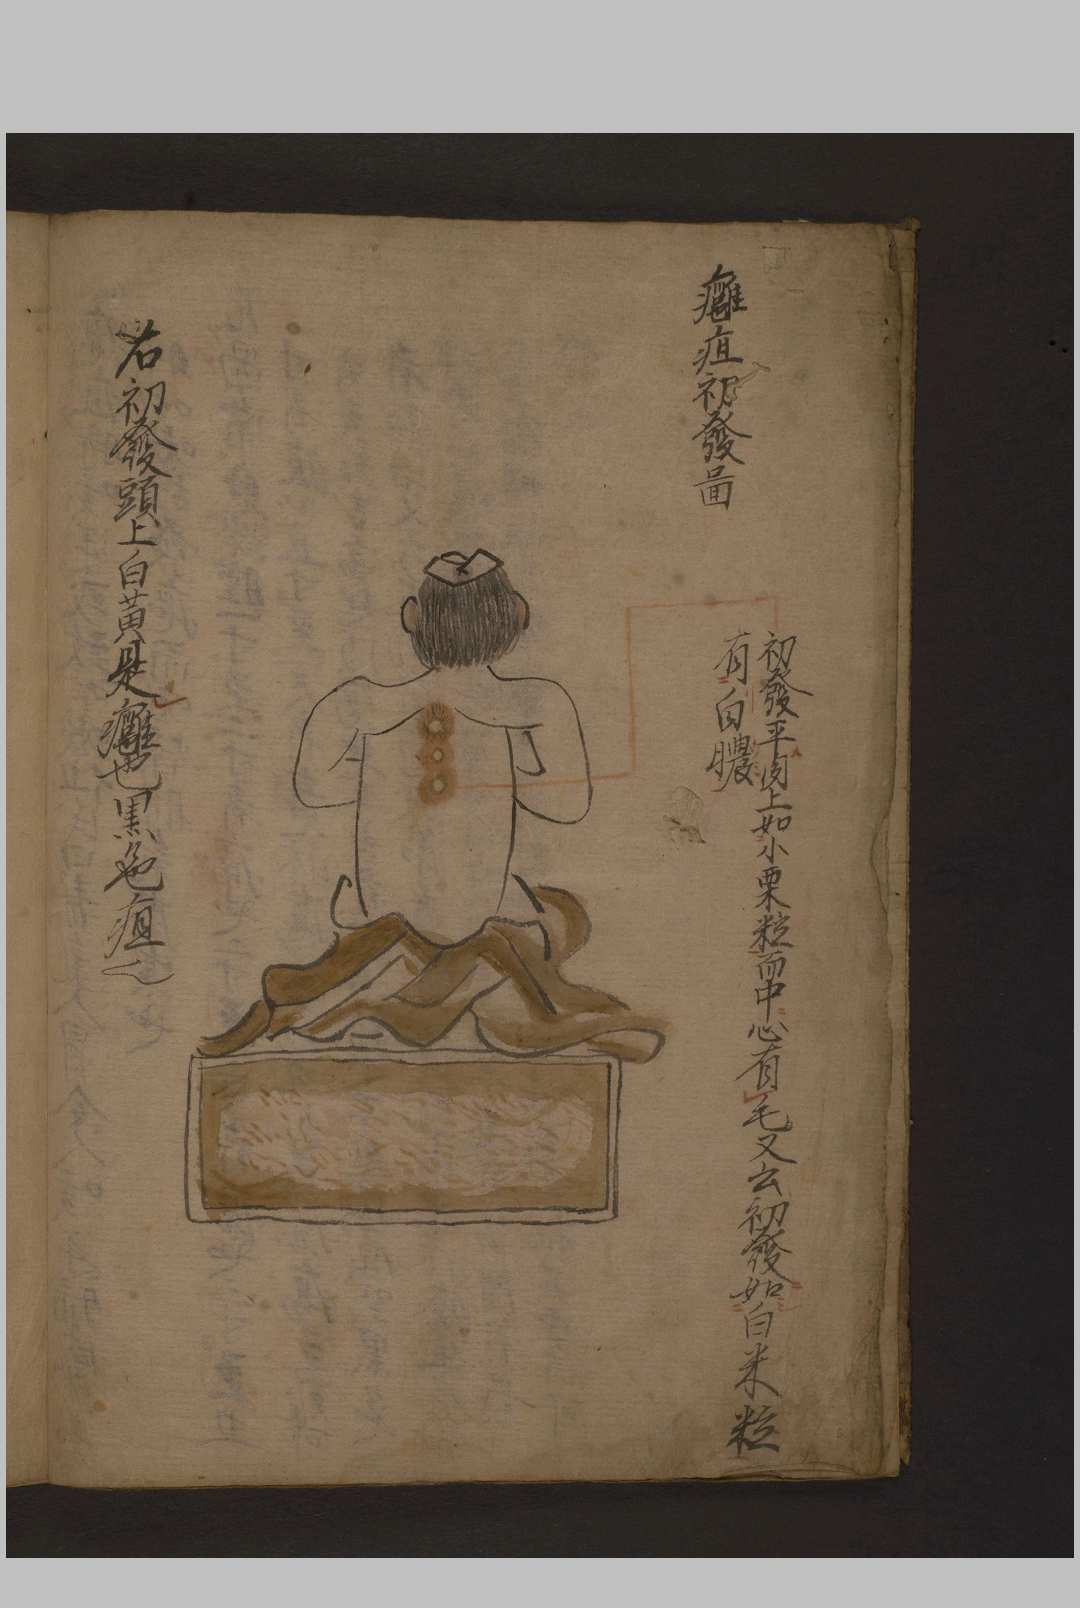 癰疽初發圖
初發平肉上如小栗粒而中心有毛又云初發如白米粒
有白膿
右初發頭上白黃是癰也黒色疽〻